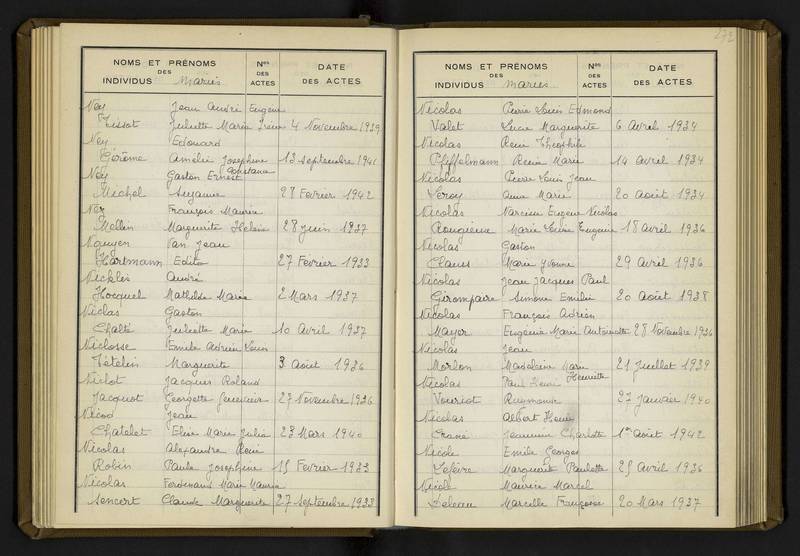 NOMS ET PRÉNOMS DES INDIVIDUS mariés Nos DES ACTES DATE DES ACTES
Ney Jean André Eugène
Tissot Juliette Marie 4 Novembre 1939
Ney Edouard
Gérôme Amélie Josephine 13 septembre 1941
Constance
Ney Gaston Ernest
Michel Suzanne 28 Fevrier 1942
Ney François Maurice
Mellin Marguerite Hélène 28 Juin 1937
Nguyen Van Jean
Hartmann Edite 27 Février 1933
Nicklès André
Hocquel Mathilde Marie 2 Mars 1937
Niclas Gaston
Chalté Juliette Marie 10 Avril 1937
Niclosse Emile Adrien Louis
Tételin Marguerite 3 Août 1936
Niclot Jacques Roland
Jacquot Georgette Geneviève 27 Novembre 1936
Nicod Jean
Chatelet Elise Marie Julia 28 Mars 1940
Nicolas Alexandre René
Robin Paule Josephine 15 Fevrier 1933
Nicolas Ferdinand Marie Maurice
Sencert Claude Marguerite 27 Septembre 1933
272
NOMS ET PRÉNOMS DES INDIVIDUS mariés Nos DES ACTES DATE DES ACTES
Nicolas Pierre Louis Edmond
Valet Lucie Marguerite 6 Avril 1934
Nicolas René Théophile
Pfiffelmann Renée Marie 14 Avril 1934
Nicolas Pierre Louis Jean
Leroy Anne Marie 20 Août 1934
Nicolas Narcisse Eugène Nicolas
Rougieux Marie Louise Eugénie 18 Avril 1936
Nicolas Gaston
Clauss Marie Yvonne 29 Avril 1936
Nicolas Jean Jacques Paul
Girompaire Simone Emilie 20 Août 1938
Nicolas François Adrien
Mayer Eugénie Marie Antoinette 28 Novembre 1936
Nicolas Jean
Morlon Madeleine Marie 21 Juillet 1939
Henriette
Nicolas Paul Henri
Vouriot Raymonde 27 Janvier 1940
Nicolas Albert Henri
Crane Jeannine Charlotte 1er Août 1942
Nicole Emile Georges
Lefèvre Marguerite Paulette 25 Avril 1936
Nicole Maurice Marcel
Deleau Marcelle Françoise 20 Mars 1937